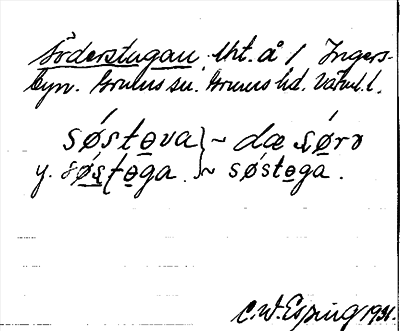 Söderstugan. Uht. å 1 Ingers-
byn. Brunns sn. Brunns hd. Värml. l.
søstɵva } ~ dæ sørɵ
y. søstɵga. } ~ søstɵga.
C. W. Esping 1931.